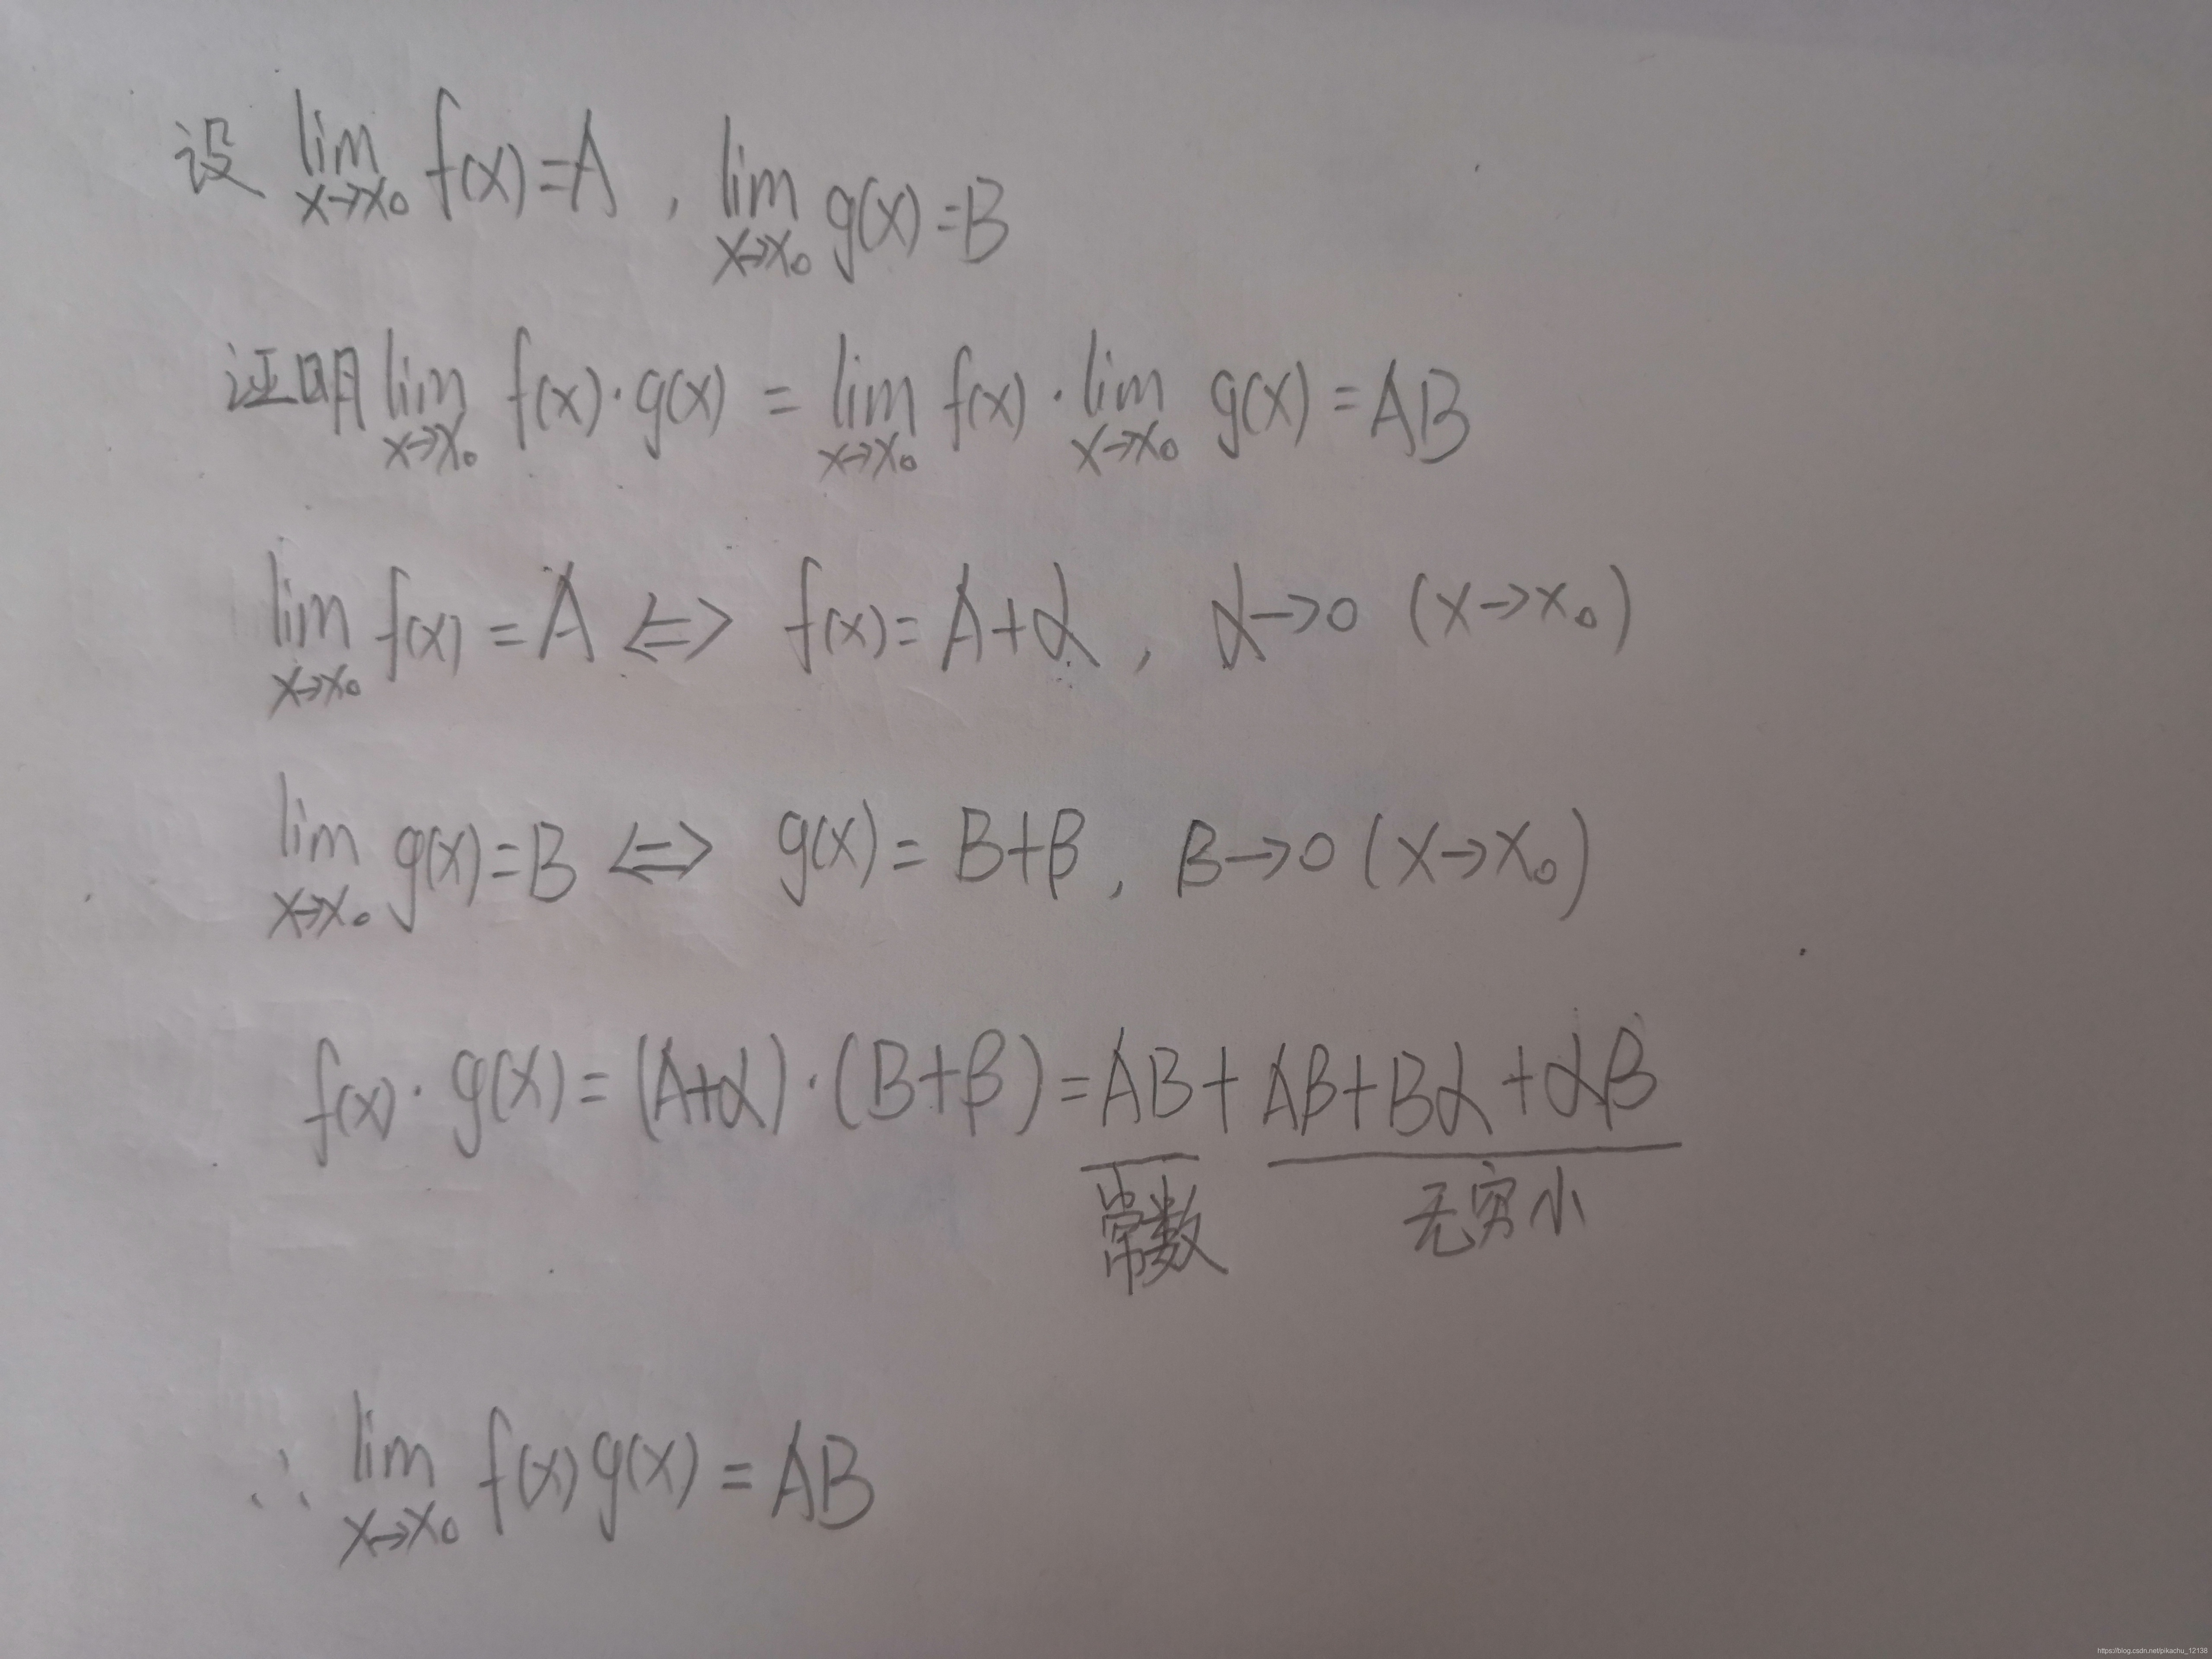 设 lim x→x₀ f(x)=A , lim x→x₀ g(x)=B
证明 lim x→x₀ f(x)·g(x) = lim x→x₀ f(x)·lim x→x₀ g(x)=AB
lim x→x₀ f(x)=A <=> f(x)=A+α, α→0 (x→x₀)
lim x→x₀ g(x)=B <=> g(x)=B+β, β→0 (x→x₀)
f(x)·g(x)=(A+α)·(B+β)=AB+Aβ+Bα+αβ
常数 无穷小
∴ lim x→x₀ f(x)g(x)=AB
https://blog.csdn.net/pikachu_12138